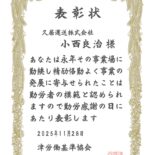 表彰状
久居運送株式会社
小西良治 様
あなたは永年その事業場に
勤続し精励恪勤よく事業の
発展に寄与せられたことは
勤労者の模範と認められ
ますので勤労感謝の日に
あたり表彰します
2025年11月28日
津労働基準協会